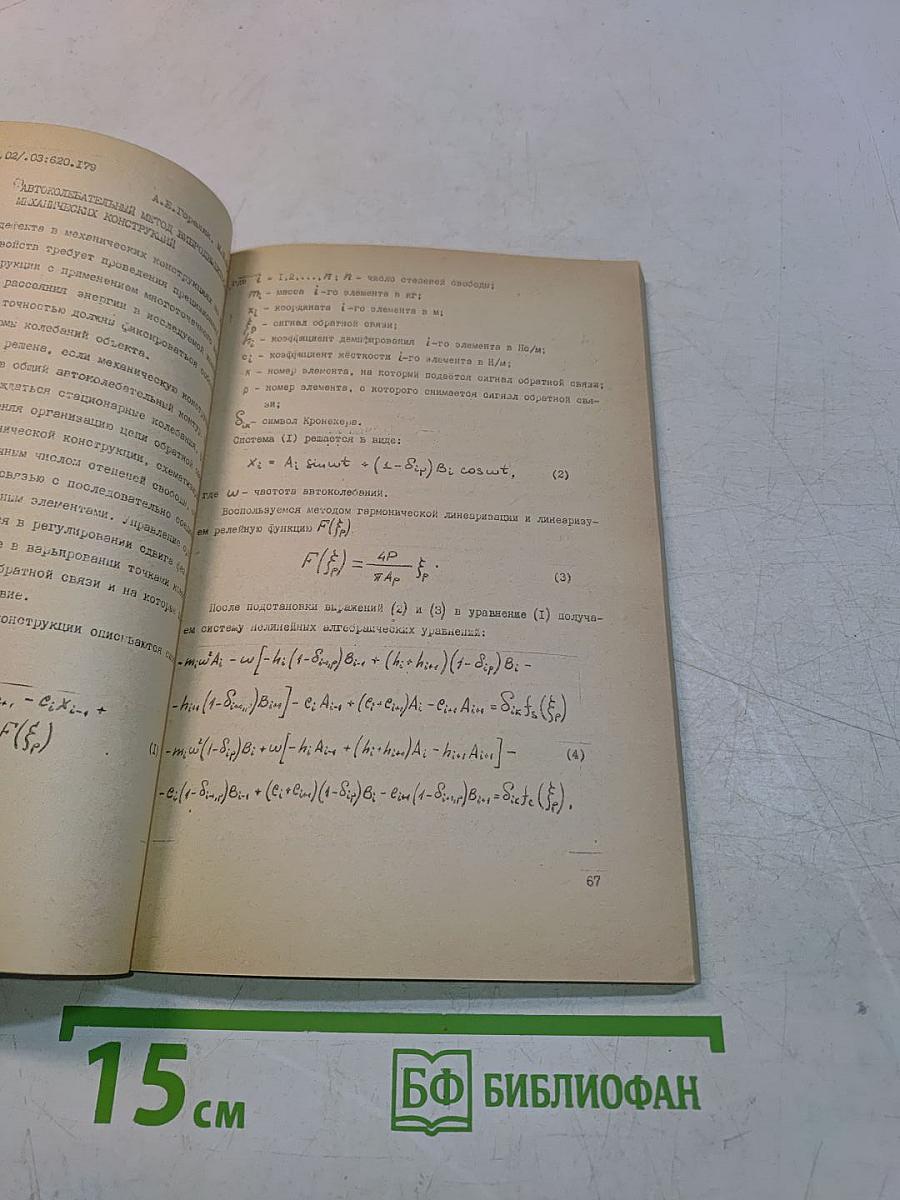 ,02/.03:620.179
АВТОКОЛЕБАТЕЛЬНЫЙ МЕТОД
МЕХАНИЧЕСКИХ КОНСТРУКЦИЙ
дефекта в механических конструкциях
требует проведения
с применением многоточечного
рассеяния энергии в исследуемой
точностью должны фиксироваться
колебаний объекта.
решена, если механическую
в общий автоколебательный контур,
стационарные колебания,
организацию цепи обратной
конструкции,
числом степеней свободы,
связью с последовательно
элементами. Управление
в регулировании сдвига
в варьировании точками
обратной связи и на которые
конструкции описываются
- cᵢxᵢ₋₁ +
F(ξₚ)
(I)
где i = 1,2,...,n; n - число степеней свободы;
mᵢ - масса i-го элемента в кг;
xᵢ - координата i-го элемента в м;
ξₚ - сигнал обратной связи;
hᵢ - коэффициент демпфирования i-го элемента в Нс/м;
cᵢ - коэффициент жёсткости i-го элемента в Н/м;
к - номер элемента, на который подаётся сигнал обратной связи;
р - номер элемента, с которого снимается сигнал обратной свя-
зи;
δᵢₖ- символ Кронекера.
Система (I) решается в виде:
xᵢ = Aᵢ sinωt + (1-δᵢₚ)Bᵢ cosωt, (2)
где ω - частота автоколебаний.
Воспользуемся методом гармонической линеаризации и линеаризу-
ем релейную функцию F(ξₚ)
F(ξₚ) = 4P/πAₚ ξₚ. (3)
После подстановки выражений (2) и (3) в уравнение (I) получа-
ем систему нелинейных алгебраических уравнений:
-mᵢω²Aᵢ - ω[-hᵢ(1-δᵢ₋₁,ₚ)Bᵢ₋₁ + (hᵢ+hᵢ₊₁)(1-δᵢₚ)Bᵢ -
-hᵢ₊₁(1-δᵢ₊₁,ₚ)Bᵢ₊₁] - cᵢAᵢ₋₁ + (cᵢ+cᵢ₊₁)Aᵢ - cᵢ₊₁Aᵢ₊₁ = δᵢₖfₛ(ξₚ)
-mᵢω²(1-δᵢₚ)Bᵢ + ω[-hᵢAᵢ₋₁ + (hᵢ+hᵢ₊₁)Aᵢ - hᵢ₊₁Aᵢ₊₁] - (4)
-cᵢ(1-δᵢ₋₁,ₚ)Bᵢ₋₁ + (cᵢ+cᵢ₊₁)(1-δᵢₚ)Bᵢ - cᵢ₊₁(1-δᵢ₊₁,ₚ)Bᵢ₊₁ = δᵢₖf_c(ξₚ),
67
15 см
БФ БИБЛИОФАН